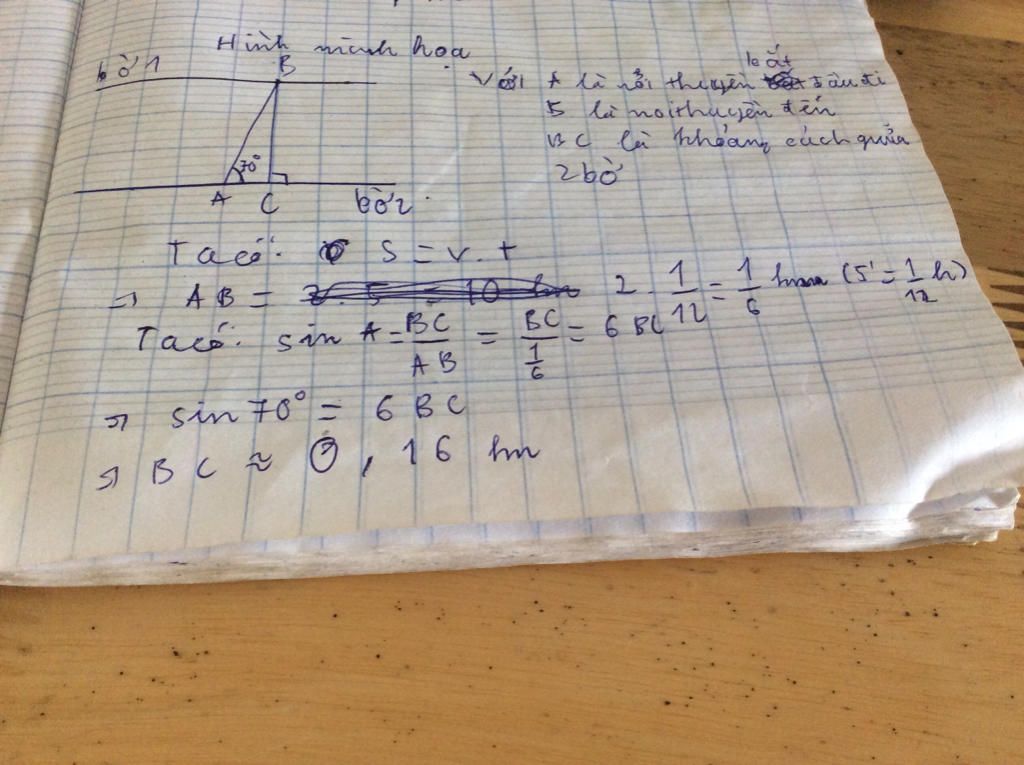 Hình minh họa
bờ 1
B
Với A là nơi thuyền bắt đầu đi
B là nơi thuyền đến
BC là khoảng cách giữa
2 bờ
70°
A C bờ 2
Ta có: S = v. t
=> AB = 2 . 1/12 = 1/6 km (5' = 1/12 h)
Ta có: sin A = BC/AB = BC/(1/6) = 6 BC
=> sin 70° = 6 BC
=> BC ≈ 0,16 km